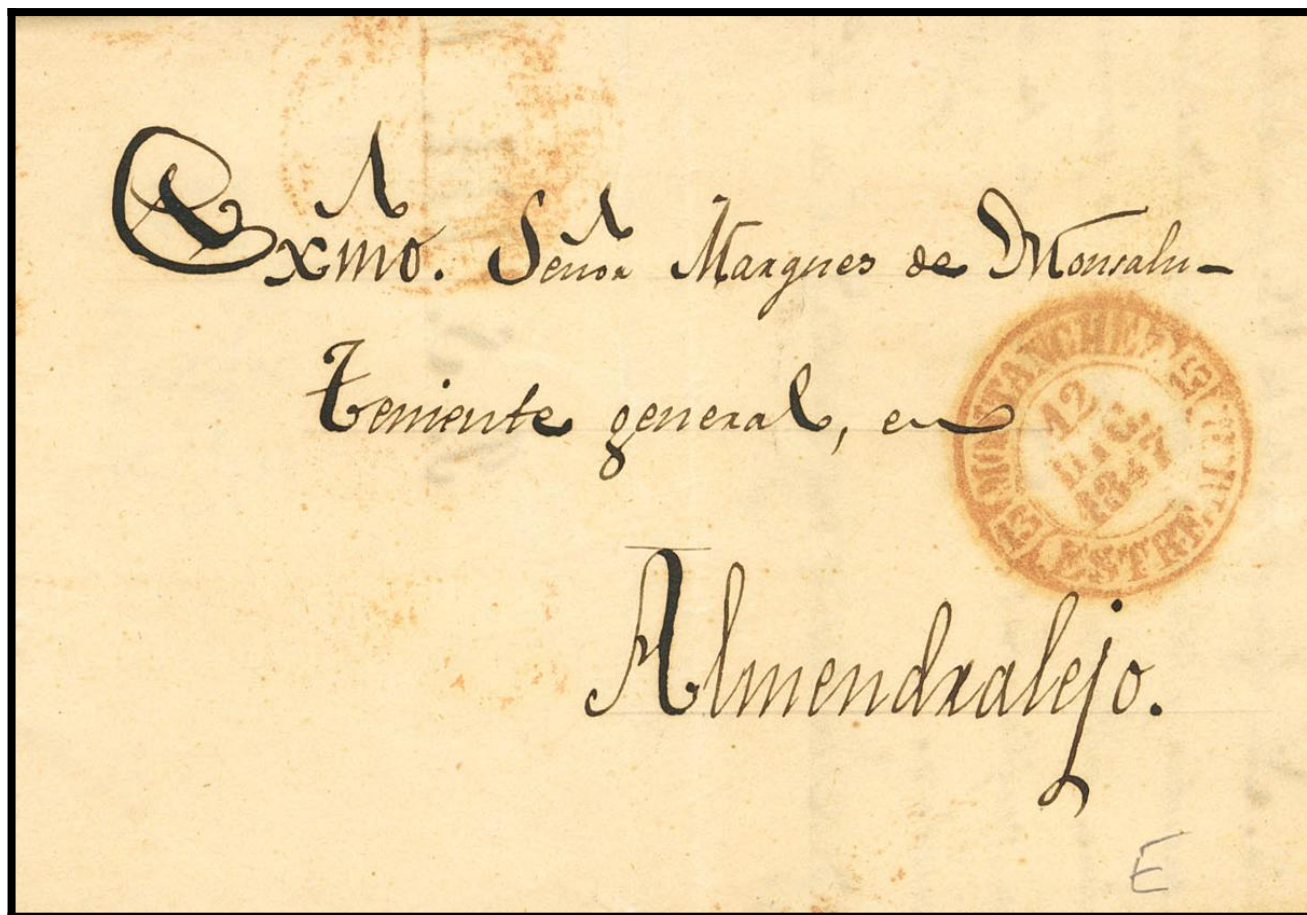 Exmo. Señor Marques de Monsalu-
teniente general, en
Almendralejo.
MONTANCHEZ
12
DIC.
1847
ESTRE
E